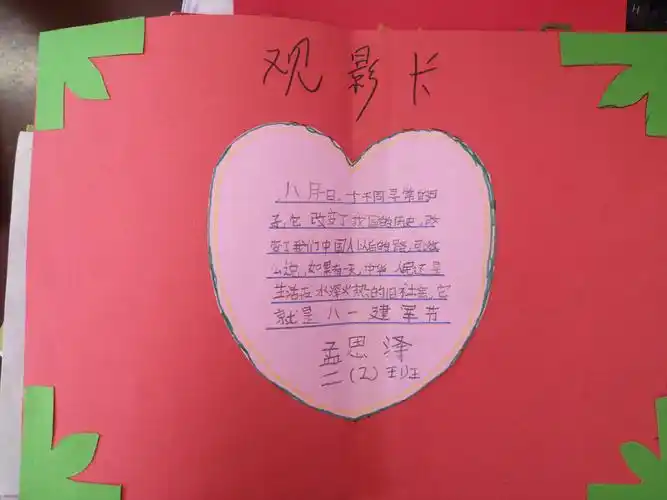 观影卡
八月一日,一个不同寻常的日
子,它改变了我国的历史,改
变了我们中国人以后的路,可以这
么说,如果有一天,中华人民还是
生活在水深火热的旧社会,它
就是八一建军节
孟思泽
二(2)班